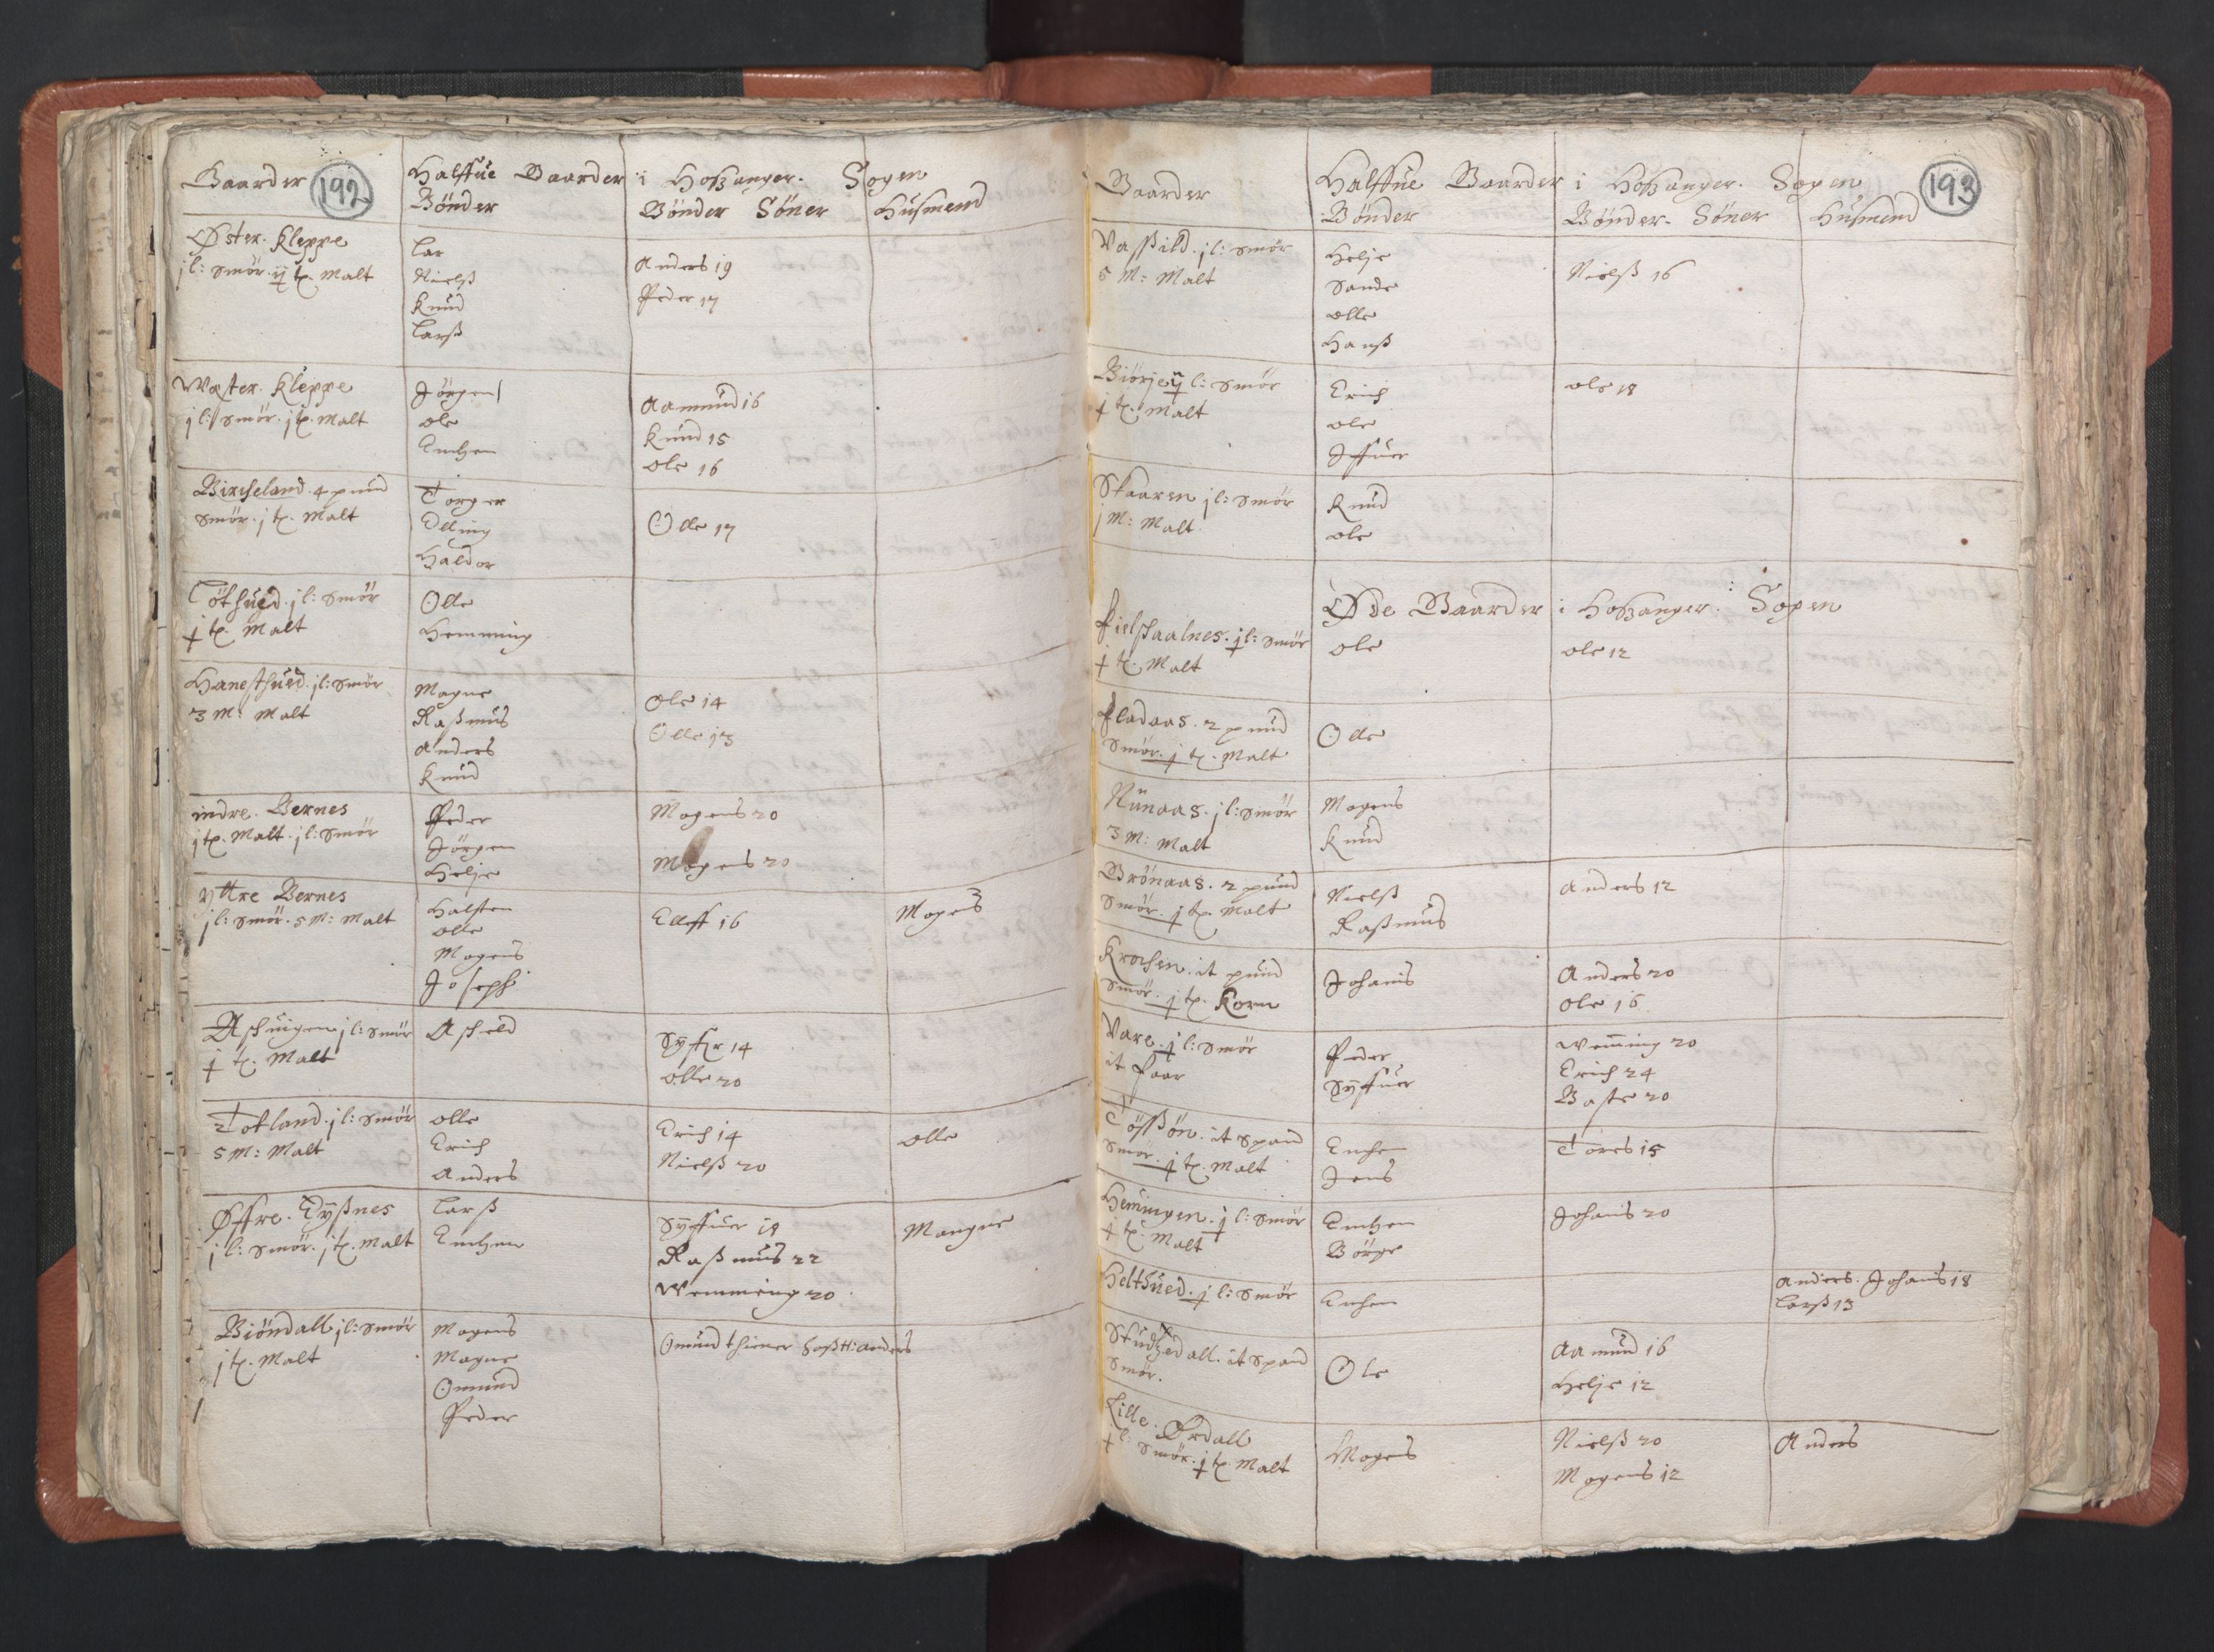 Gaarder 192 Halffue Gaarder i Hoßanger. Sogen
Bönder Bönder Söner Hüsmend
Øster. Kleppe
jl: Smör. ij tp. Malt
Lar
Nielß
Knud
Larß
Anders 19
Peder 17
Wæster. Kleppe
jl: Smör. j tp. Malt
Jörgen
ole
Aamund 16
Knud 15
ole 16
Bircheland. 4 pund
Smör. j tp. Malt
Torger
Elling
Haldor
Olle 17
jl: Smör
j tp. Malt
Olle
Hemming
jl: Smör
3 M: Malt
Magne
Raßmus
Anders
Knud
Ole 14
Olle 13
indre. Bernes
j tp. Malt. jl: Smör
Peder
Jörgen
Helje
Mogens 20
Mogens 20
yttre Bernes
jl: Smör. 5 M: Malt
Halsten
olle
Mogens
Joseph
Elleff 16
Mogens
jl: Smör
j tp. Malt
Askeld
14
olle 20
Totland. jl: Smör
5 M: Malt
olle
Erich
Anders
Erich 14
Nielß 20
olle
Øffre. Eyßnes
jl: Smör. j tp. Malt
Larß
Syffuer 18
Raßmus 22
Wemming 20
Mangne
Biöndall jl: Smör
j tp. Malt
Mogens
Magne
Omund
Peder
Omund thiener hoß H: anders
Gaarder Halffue Gaarder i Hoßanger. Sogen 193
Bönder Bönder. Söner Hüsmend
jl: Smör
5 M: Malt
Helje
Sande
olle
Hanß
Nielß 16
l: Smör
j tp. Malt
Erich
ole
Jffuer
ole 18
Skaaren jl: Smör
j M: Malt
Knud
ole
Øde Gaarder i Hoßanger: Sogen
Fielskaalnes. jl: Smör
j tp. Malt
ole
ole 12
Fladaas. 2 pund
Smör. j tp. Malt
Olle
Nünaas. jl: Smör
3 M: Malt
Mogens
Knud
Brönaas. 2 pund
Smör. j tp. Malt
Nielß
Raßmus
Anders 12
Krochen. it pund
Smör. j tp. Korn
Johanis
Anders 20
ole 16
Vare. jl: Smör
it faar
Peder
Syffuer
Weming 20
Erich 24
Baste 20
it Spand
Smör. j tp. Malt
Jens
Tores 15
Hemingen. jl: Smör
j tp. Malt
Börge
Johanis 20
jl: Smör
Anders. Johanis 18
Larß 13
it Spand
Smör.
Ole
Aamund 16
Helje 12
Lille. Ørdall
l: Smör. j tp. Malt
Mogens
Nielß 20
Mogens 12
Anders